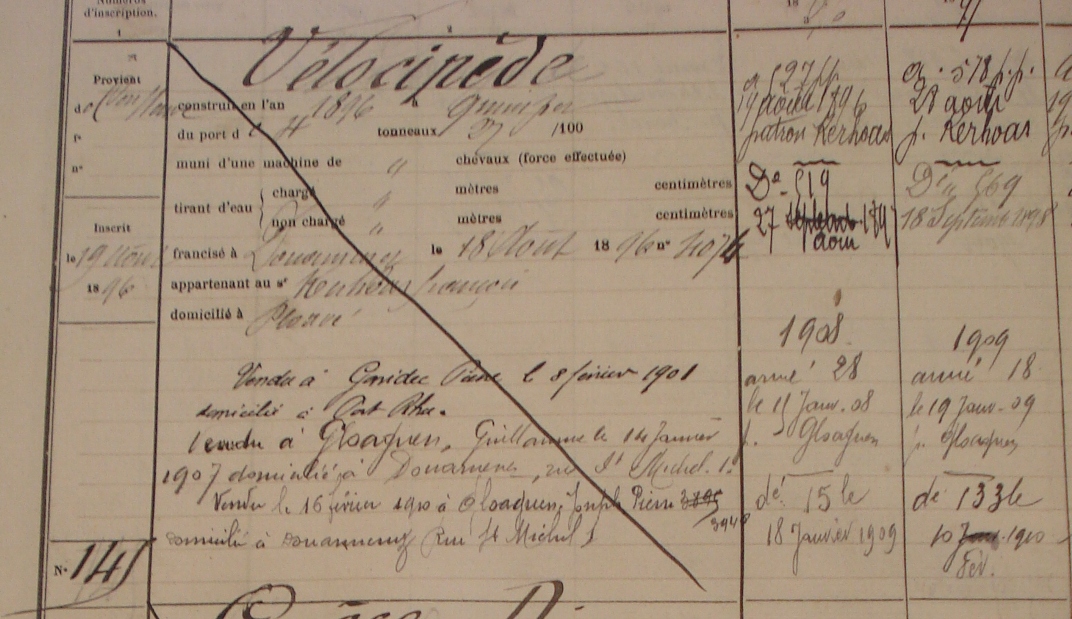 Numéros
d'inscription.
1
2
3
Vélocipède
Provient
construit en l'an 1896 Quimper
du port d 4 tonneaux /100
n°
muni d'une machine de " chevaux (force effectuée)
tirant d'eau { chargé " mètres centimètres
non chargé " mètres centimètres
francisé à Douarnenez le 18 Août 1896 n°
appartenant au sr Kerhoas François
domicilié à Ploaré
Inscrit
le 19 Août
1896
Vendu à Garidec Pierre le 8 février 1901
domicilié à Port Rhu.
Vendu à Gloaguen, Guillaume le 14 Janvier
1907 domicilié à Douarnenez, rue St Michel.
Vendu le 16 février 1910 à Gloaguen, Joseph Pierre
3948
domicilié à Douarnenez Rue St Michel
N° 145
a 527 ff.
19 août 1896
patron Kerhoas
Dé 519
27 août 1897
1908
armé 28
le 11 Janv. 08
p. Gloaguen
dé 15 le
18 Janvier 1909
97
a. 578 f.f.
28 août
p. Kerhoas
Dé à 569
18 Septembre 1898
1909
armé 18
le 19 Janv. 09
p. Gloaguen
dé 133 le
10 Janv. 1910
Fév.